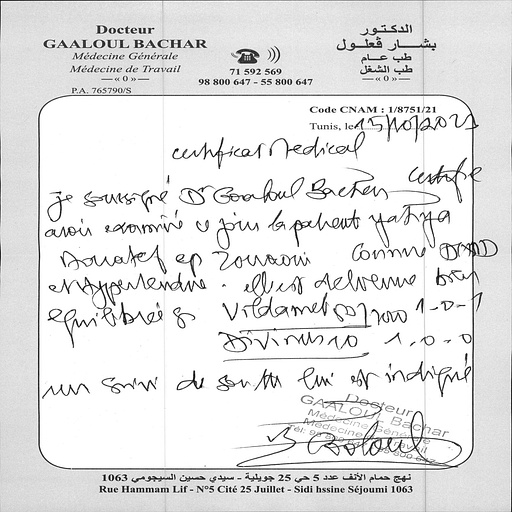 Docteur
GAALOUL BACHAR
Médecine Générale
Médecine de Travail
—« 0 »—
P.A. 765790/S
71 592 569
98 800 647 - 55 800 647
الدكتور
بشار ڨعلول
طب عام
طب الشغل
—« 0 »—
Code CNAM : 1/8751/21
Tunis, le 15/10/2021
certificat Medical
je soussigné Dr Gaaloul Bachar certifie
avoir examiné ce jour la patient
ep Zouaoui Connue
et hypertendue. elle est devenue bien
équilibrée s 50/1000 1-0-1
10 1.0.0
un suivi de santé lui est indiqué
Docteur
GAALOUL Bachar
Médecine Générale
نهج حمام الأنف عدد 5 حي 25 جويلية - سيدي حسين السيجومي 1063
Rue Hammam Lif - N°5 Cité 25 Juillet - Sidi hssine Séjoumi 1063